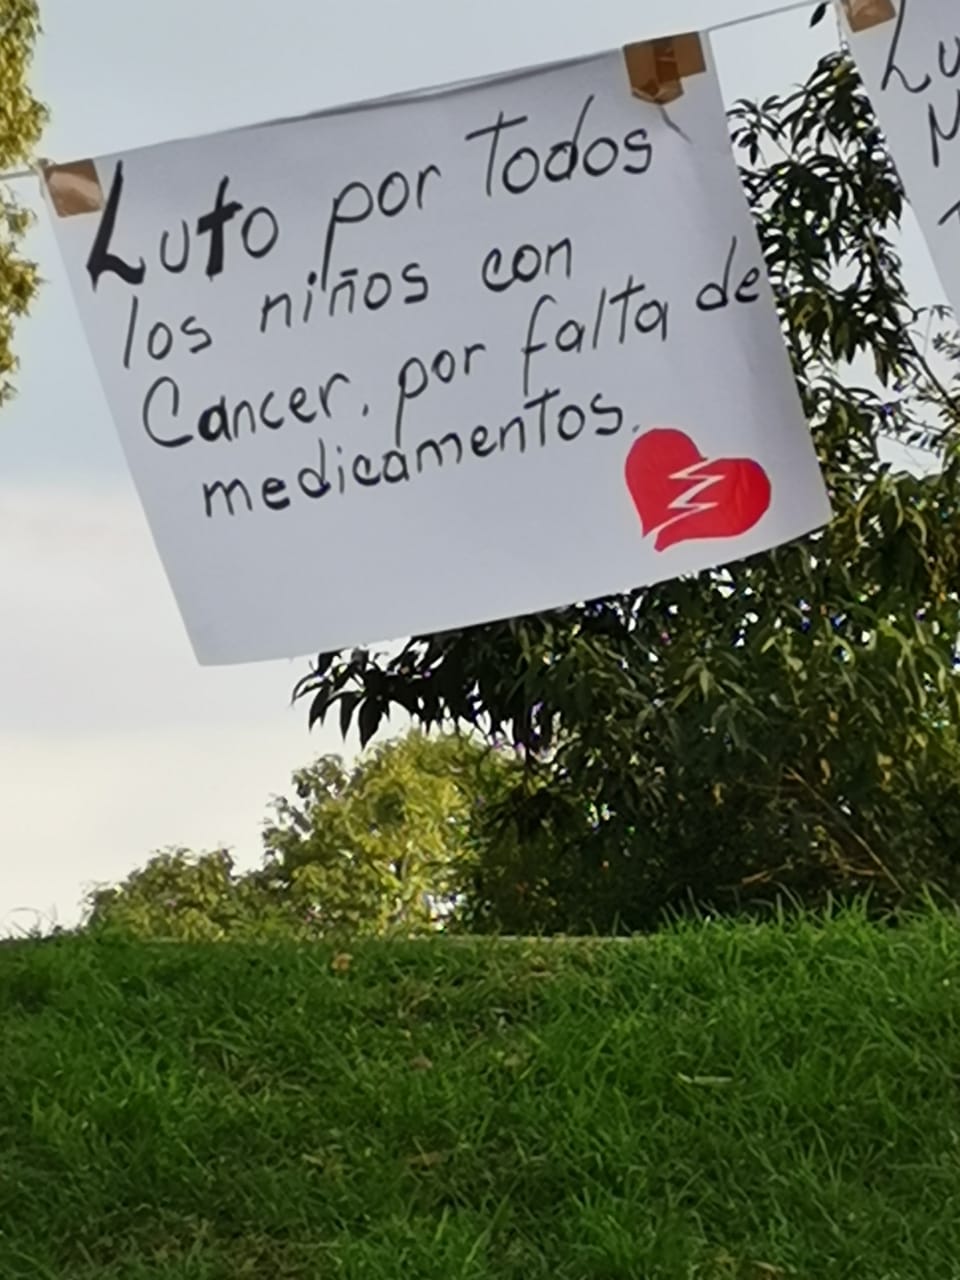 Luto por Todos
los niños con
Cancer, por falta de
medicamentos.
Lu